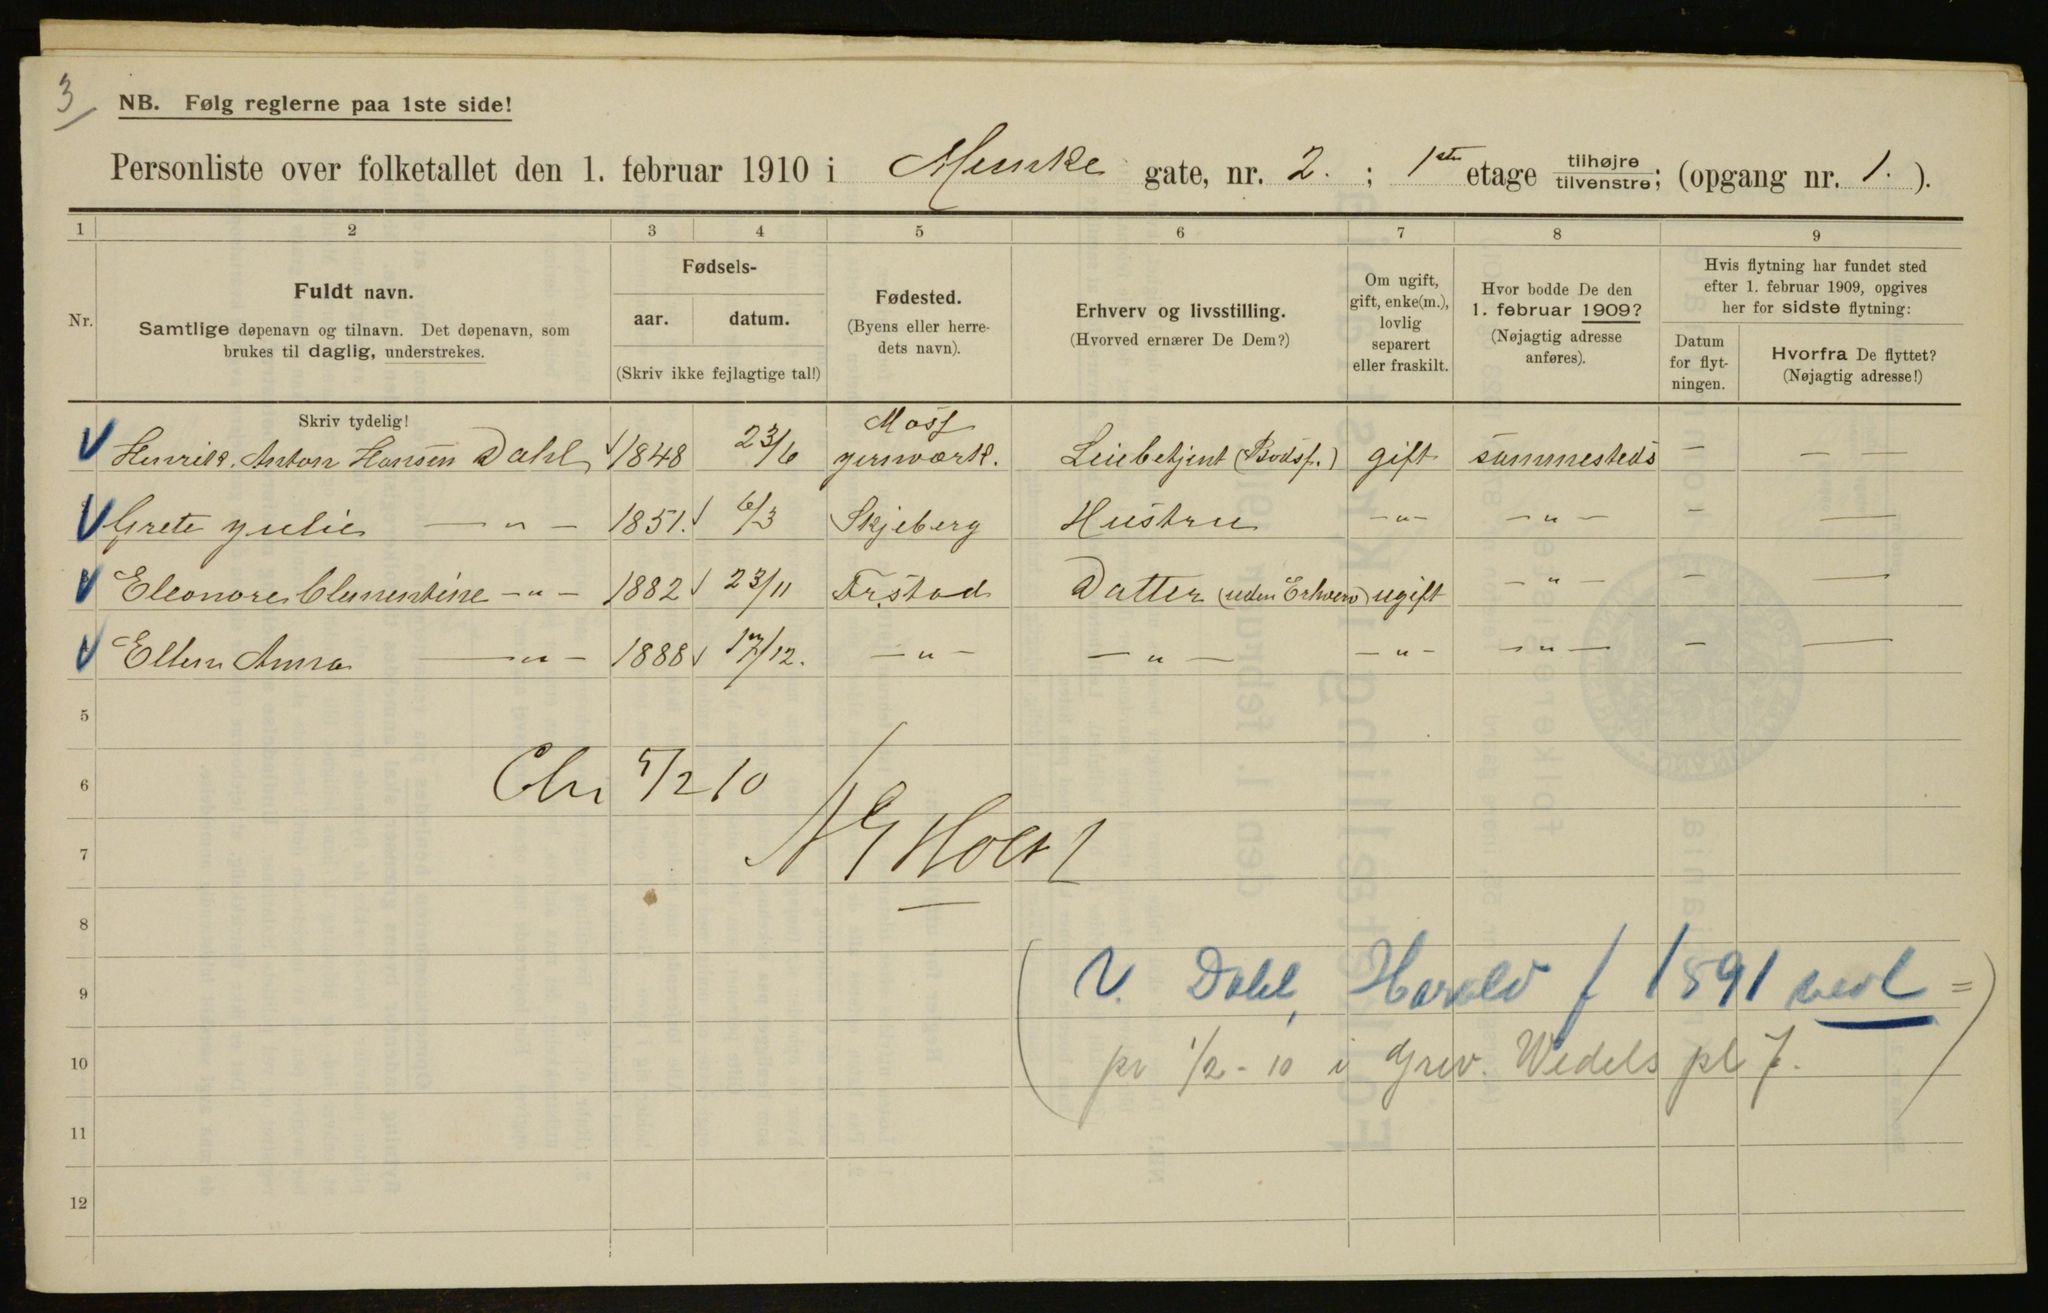 3
NB. Følg reglerne paa 1ste side!
Personliste over folketallet den 1. februar 1910 i Munke gate, nr. 2. ; 1ste etage tilhøjre tilvenstre; (opgang nr. 1. ).
1 2 3 4 5 6 7 8 9
Nr.
Fuldt navn.
Samtlige døpenavn og tilnavn. Det døpenavn, som
brukes til daglig, understrekes.
Fødsels-
aar. datum.
(Skriv ikke fejlagtige tal!)
Fødested.
(Byens eller herre-
dets navn).
Erhverv og livsstilling.
(Hvorved ernærer De Dem?)
Om ugift,
gift, enke(m.),
lovlig
separert
eller fraskilt.
Hvor bodde De den
1. februar 1909?
(Nøjagtig adresse
anføres).
Hvis flytning har fundet sted
efter 1. februar 1909, opgives
her for sidste flytning:
Datum
for flyt-
ningen.
Hvorfra De flyttet?
(Nøjagtig adresse!)
Skriv tydelig!
Henrik Anton Hansen Dahl 1848 23/6 Moss jernværk. (Bodsf.) gift sammesteds — — —
Grete Julie —"— 1851. 6/3 Skjeberg Hustru —"— —"— — —
Eleonore Clementine —"— 1882 23/11 Fr.stad Datter (uden Erhverv) ugift —"— — —
Ellen Anna —"— 1888 17/12. —"— —"— —"— —"— — —
5
6 Chr 5/2 10
7 Holst
8
9 V. Dahl, Harald f 1891 vedl =
10 pr 1/2 - 10 i Grev. Wedels pl 7.
11
12